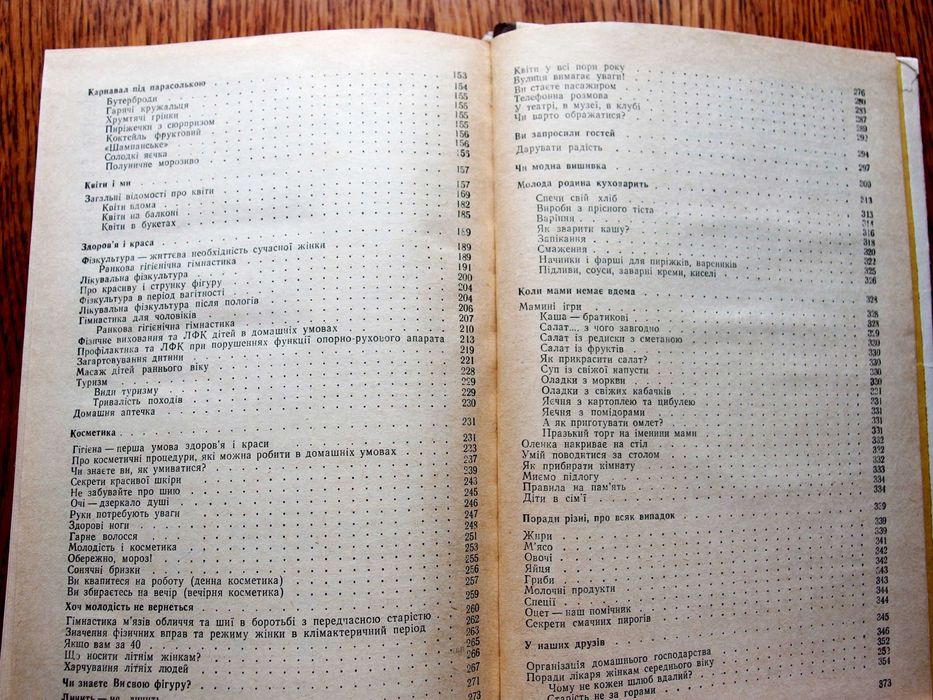 Карнавал під парасолькою 153
Бутерброди 154
Гарячі кружальця 155
Хрумтячі грінки 155
Пиріжечки з сюрпризом 155
Коктейль фруктовий 155
«Шампанське» 156
Солодкі яєчка 156
Полуничне морозиво
Квіти і ми 157
Загальні відомості про квіти 157
Квіти вдома 169
Квіти на балконі 182
Квіти в букетах 185
Здоров'я і краса 189
Фізкультура — життєва необхідність сучасної жінки 189
Ранкова гігієнічна гімнастика 189
Лікувальна фізкультура 191
Про красиву і струнку фігуру 200
Фізкультура в період вагітності 204
Лікувальна фізкультура після пологів 204
Гімнастика для чоловіків 206
Ранкова гігієнічна гімнастика 207
Фізичне виховання та ЛФК дітей в домашніх умовах 210
Профілактика та ЛФК при порушеннях функції опорно-рухового апарата 213
Загартовування дитини 219
Масаж дітей раннього віку 221
Туризм 228
Види туризму 229
Тривалість походів 229
Домашня аптечка 230
Косметика 231
Гігієна — перша умова здоров'я і краси 231
Про косметичні процедури, які можна робити в домашніх умовах 233
Чи знаєте ви, як умиватися? 237
Секрети красивої шкіри 239
Не забувайте про шию 243
Очі — дзеркало душі 245
Руки потребують уваги 246
Здорові ноги 247
Гарне волосся 248
Молодість і косметика 251
Обережно, мороз! 253
Сонячні бризки 255
Ви квапитеся на роботу (денна косметика) 256
Ви збираєтесь на вечір (вечірня косметика) 257
Хоч молодість не вернеться 259
Гімнастика м'язів обличчя та шиї в боротьбі з передчасною старістю 260
Значення фізичних вправ та режиму жінки в клімактеричний період 262
Якщо вам за 40 263
Що носити літнім жінкам? 265
Харчування літніх людей 266
Чи знаєте Ви свою фігуру? 267
Личить — не личить 271
273
Квіти у всі пори року 276
Вулиця вимагає уваги! 280
Ви стаєте пасажиром 283
Телефонна розмова 287
У театрі, в музеї, в клубі 289
Чи варто ображатися? 292
Ви запросили гостей 294
Дарувати радість 297
Чи модна вишивка 309
Молода родина куховарить 313
Спечи свій хліб 313
Вироби з прісного тіста 314
Варіння 316
Як зварити кашу? 318
Запікання 320
Смаження 322
Начинки і фарші для пиріжків, вареників 325
Підливи, соуси, заварні креми, киселі 326
Коли мами немає вдома 328
Мамині ігри 328
Каша — братикові 328
Салат.... з чого завгодно 329
Салат із редиски з сметаною 330
Салат із фруктів 330
Як прикрасити салат? 330
Суп із свіжої капусти 330
Оладки з моркви 331
Оладки з свіжих кабачків 331
Яєчня з картоплею та цибулею 331
Яєчня з помідорами 331
А як приготувати омлет? 331
Празький торт на іменини мами 332
Оленка накриває на стіл 332
Умій поводитися за столом 332
Як прибирати кімнату 333
Миємо підлогу 334
Правила на пам'ять 334
Діти в сім'ї 339
Поради різні, про всяк випадок 339
Жири 339
М'ясо 341
Овочі 342
Яйця 342
Гриби 343
Молочні продукти 343
Спеції 344
Оцет — наш помічник 344
Секрети смачних пирогів 345
У наших друзів 346
Організація домашнього господарства 352
Поради лікаря жінкам середнього віку 353
Чому не кожен шлюб вдалий? 354
Старість не за горами 373